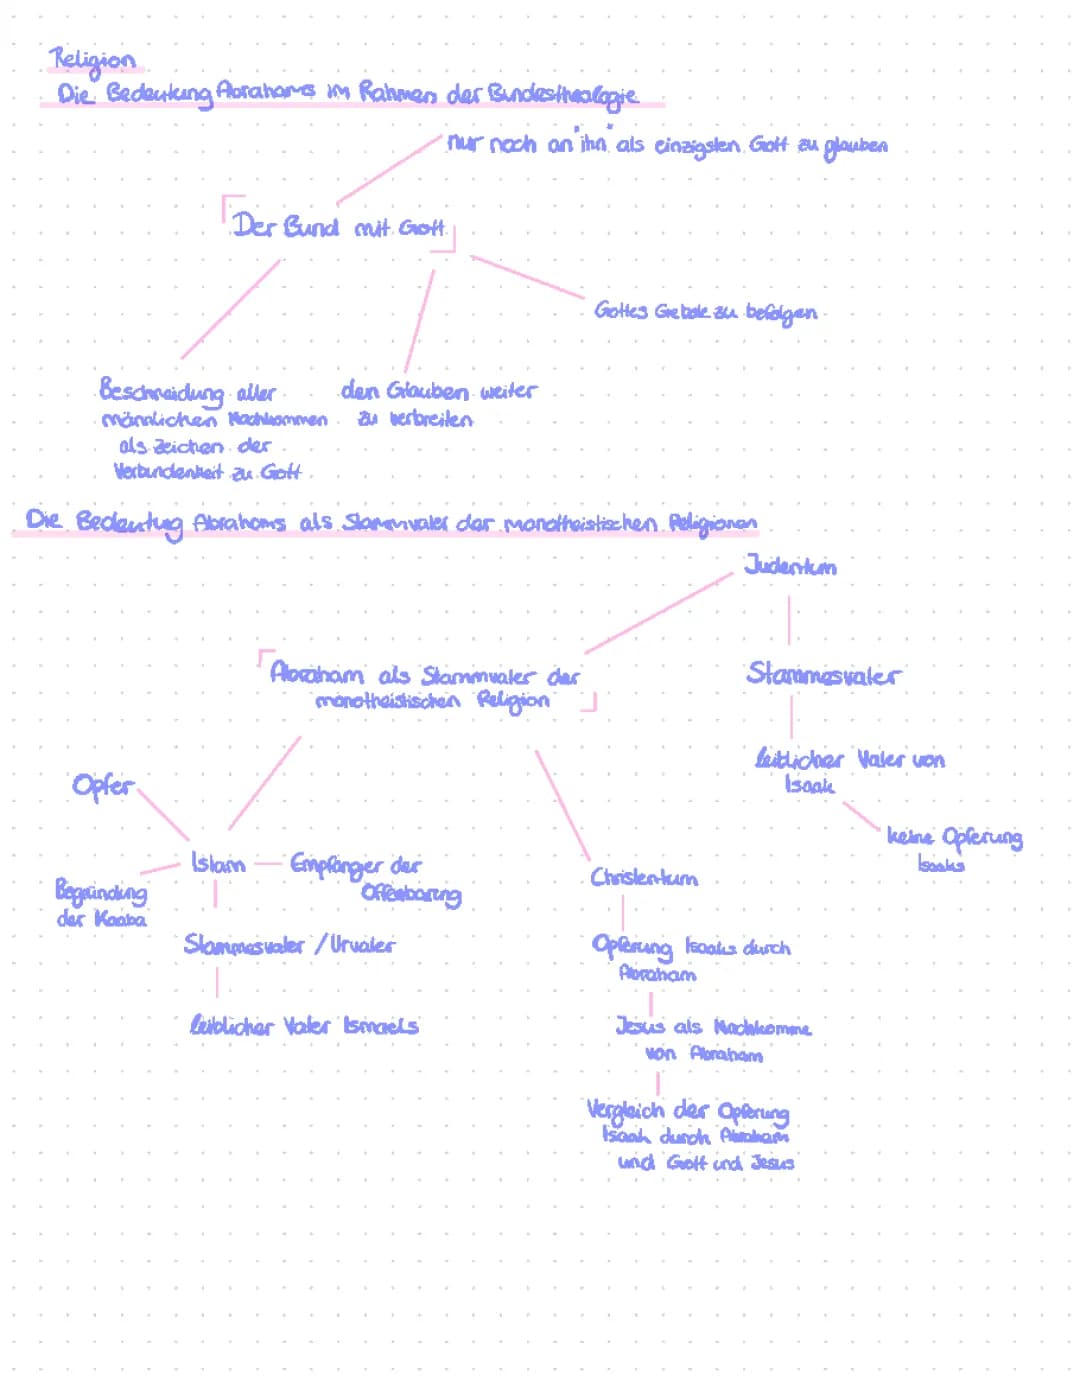 Religion
Die Bedeutung Abrahams im Rahmen der Bundestheologie
nur noch an "ihn" als einzigsten Gott zu glauben
Der Bund mit Gott
Gottes Gebote zu befolgen
Beschneidung aller
männlichen Nachkommen
als Zeichen der
Verbundenheit zu Gott
den Glauben weiter
zu verbreiten
Die Bedeutung Abrahams als Stammvater der monotheistischen Religionen
Judentum
Abraham als Stammvater der
monotheistischen Religion
Stammesvater
leiblicher Vater von
Isaak
keine Opferung
Isaaks
Opfer
Islam
Empfänger der
Offenbarung
Begründung
der Kaaba
Stammesvater / Urvater
leiblicher Vater Ismaels
Christentum
Opferung Isaaks durch
Abraham
Jesus als Nachkomme
von Abraham
Vergleich der Opferung
Isaak durch Abraham
und Gott und Jesus